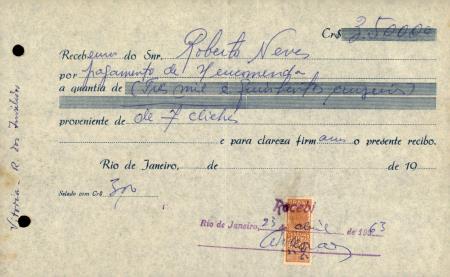 Cr$ 3.500,00
Recebemos do Snr. Roberto Neves
por pagamento de encomenda
a quantia de (Tres mil e quinhentos cruzeiros)
proveniente de 7 clichês
e para clareza firmamos o presente recibo.
Rio de Janeiro, de de 19
Selado com Cr$ 3,00
Recebi
Rio de Janeiro, 23 de abril de 1963
Vitória - R. dos